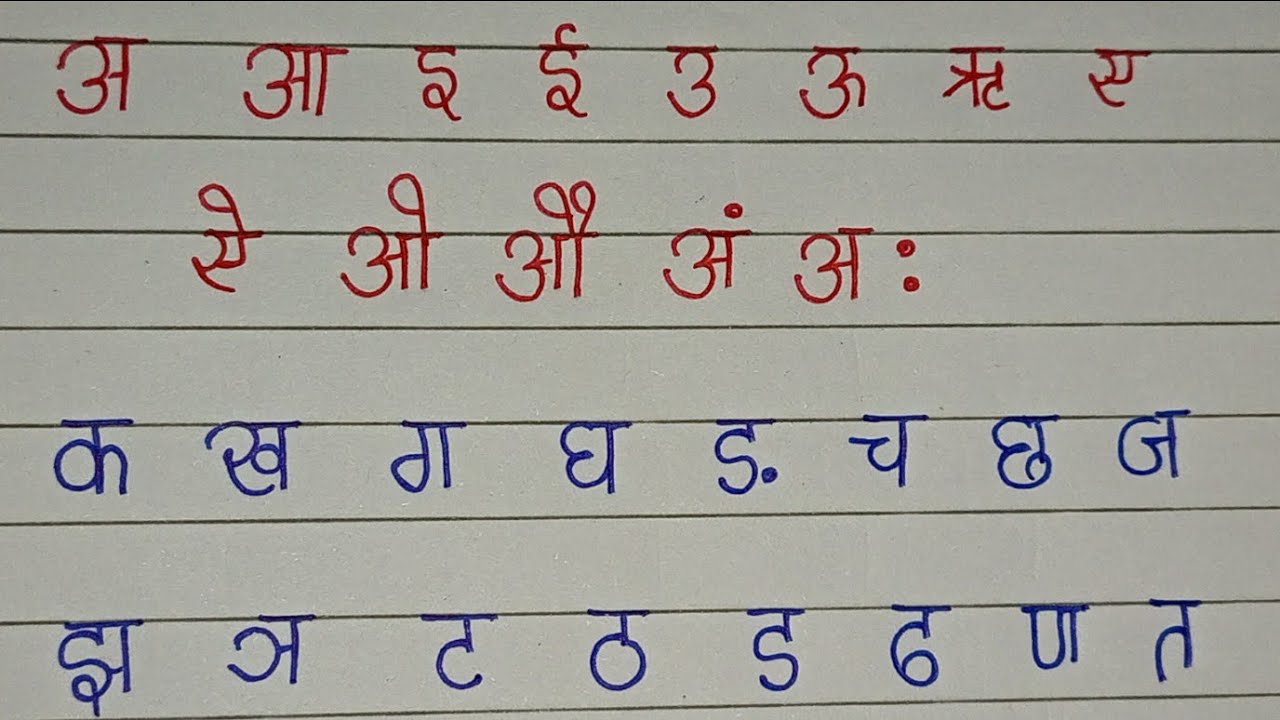 अ आ इ ई उ ऊ ऋ ए
ऐ ओ औ अं अः
क ख ग घ ङ च छ ज
झ ञ ट ठ ड ढ ण त